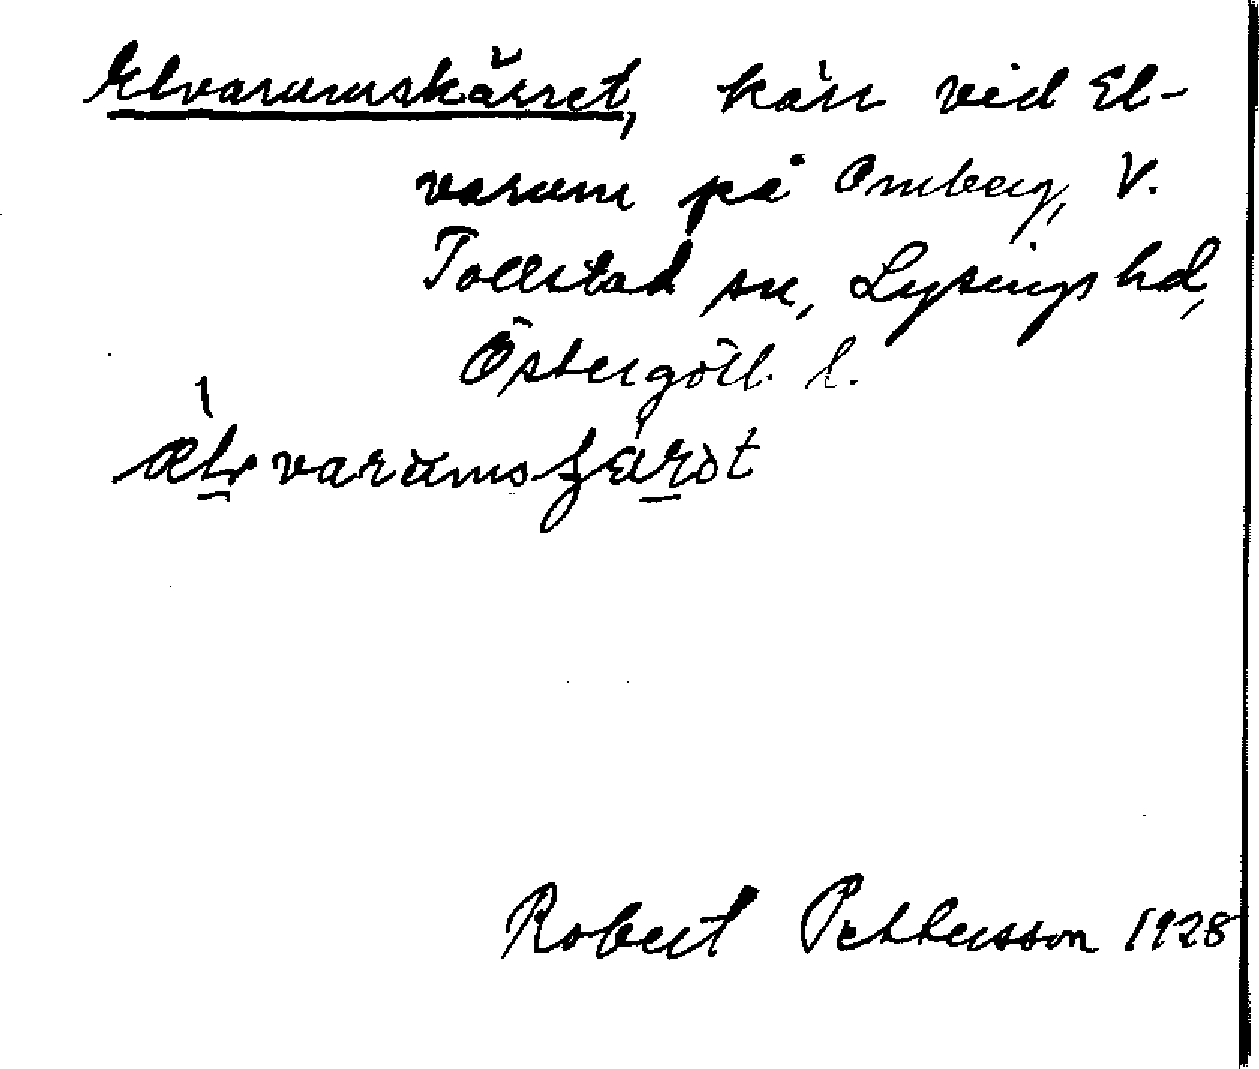 Elvarumskärret, kärr vid El-
varum på Omberg, V.
Tollstad sn, Lysings hd,
Östergötl. l.
Robert Pettersson 1928